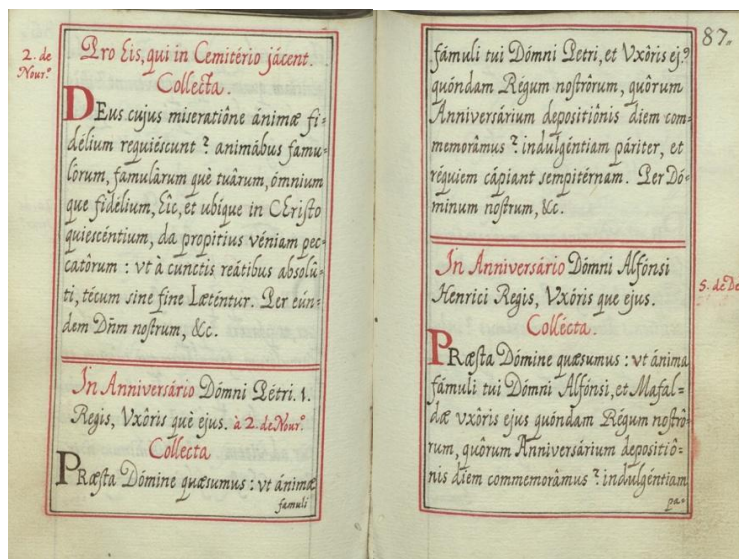 2. de
Nour.º
Pro Eis, qui in Cemitério jácent.
Collecta.
DEus cujus miseratiône ánimæ fi=
délium requiéscunt ? animábus famu=
lôrum, famulàrum què tuârum, ómnium
que fidélium, hîc, et ubíque in Christo
quiescéntium, da propítius véniam pec=
catôrum : vt à cunctis reátibus absolú=
ti, técum sine fine Læténtur. Per eún=
dem Dñm nostrum, &c.
In Anniversário Dómni Pétri. 1.
Regis, Vxôris què ejus. à 2. de Nour.º
Collecta
PRæsta Dómine quæsumus : vt ánimæ
famuli
87.
fámuli tui Dómni Petri, et Vxôris ej.9
quóndam Régum nostrôrum, quôrum
Anniversárium depositiônis diem com=
memorâmus ? indulgéntiam páriter, et
réquiem cápiant sempitérnam. Per Dó=
minum nostrum, &c.
5. de De
In Anniversário Dómni Alfónsi
Henrici Regis, Vxóris que ejus.
Collécta.
PRæsta Dómine quæsumus : vt ánima
fámuli tui Dómni Alfónsi, et Mafal=
dæ vxôris ejus quóndam Régum nostrô=
rum, quôrum Anniversárium depositiô=
nis diem commemorâmus ? indulgéntiam
pa=